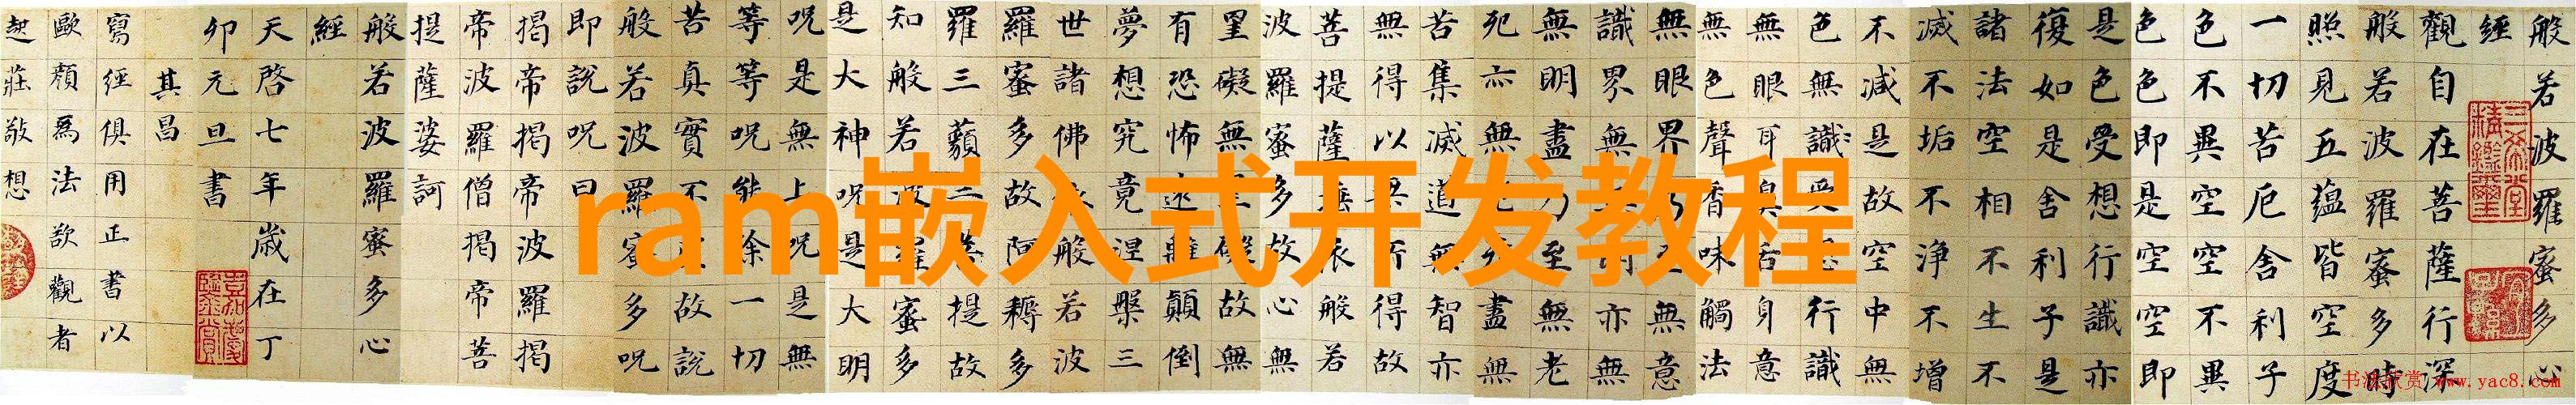 般若波羅蜜多心
經
觀自在菩薩行深
般若波羅蜜多時
照見五蘊皆空度
一切苦厄舍利子
色不異空空不異
色色即是空空即
是色受想行識亦
復如是舍利子是
諸法空相不生不
滅不垢不淨不增
不減是故空中無
色無識受想行識
無眼耳鼻舌身意
無色聲香味觸法
無眼界乃至無意
識界無無明亦無
無明盡乃至無老
死亦無老死盡無
苦集滅道無智亦
無得以無所得故
菩提薩埵依般若
波羅蜜多故心無
罣礙無罣礙故無
有恐怖遠離顛倒
夢想究竟涅槃三
世諸佛依般若波
羅蜜多故阿耨多
羅三藐三菩提故
知般若波羅蜜多
是大神呪是大明
呪是無上呪是無
等等呪能除一切
苦真實不虛故說
般若波羅蜜多呪
即說呪曰
揭帝揭帝波羅揭
帝波羅僧揭帝菩
提薩婆訶
般若波羅蜜多心
經
天啓七年歲在丁
卯元旦書
其昌
寫經俱用正書以
歐顏爲法欲觀者
起莊敬想
三希堂精鑑璽
宜子孫
ram嵌入式开发教程
书法欣赏 www.yac8.com